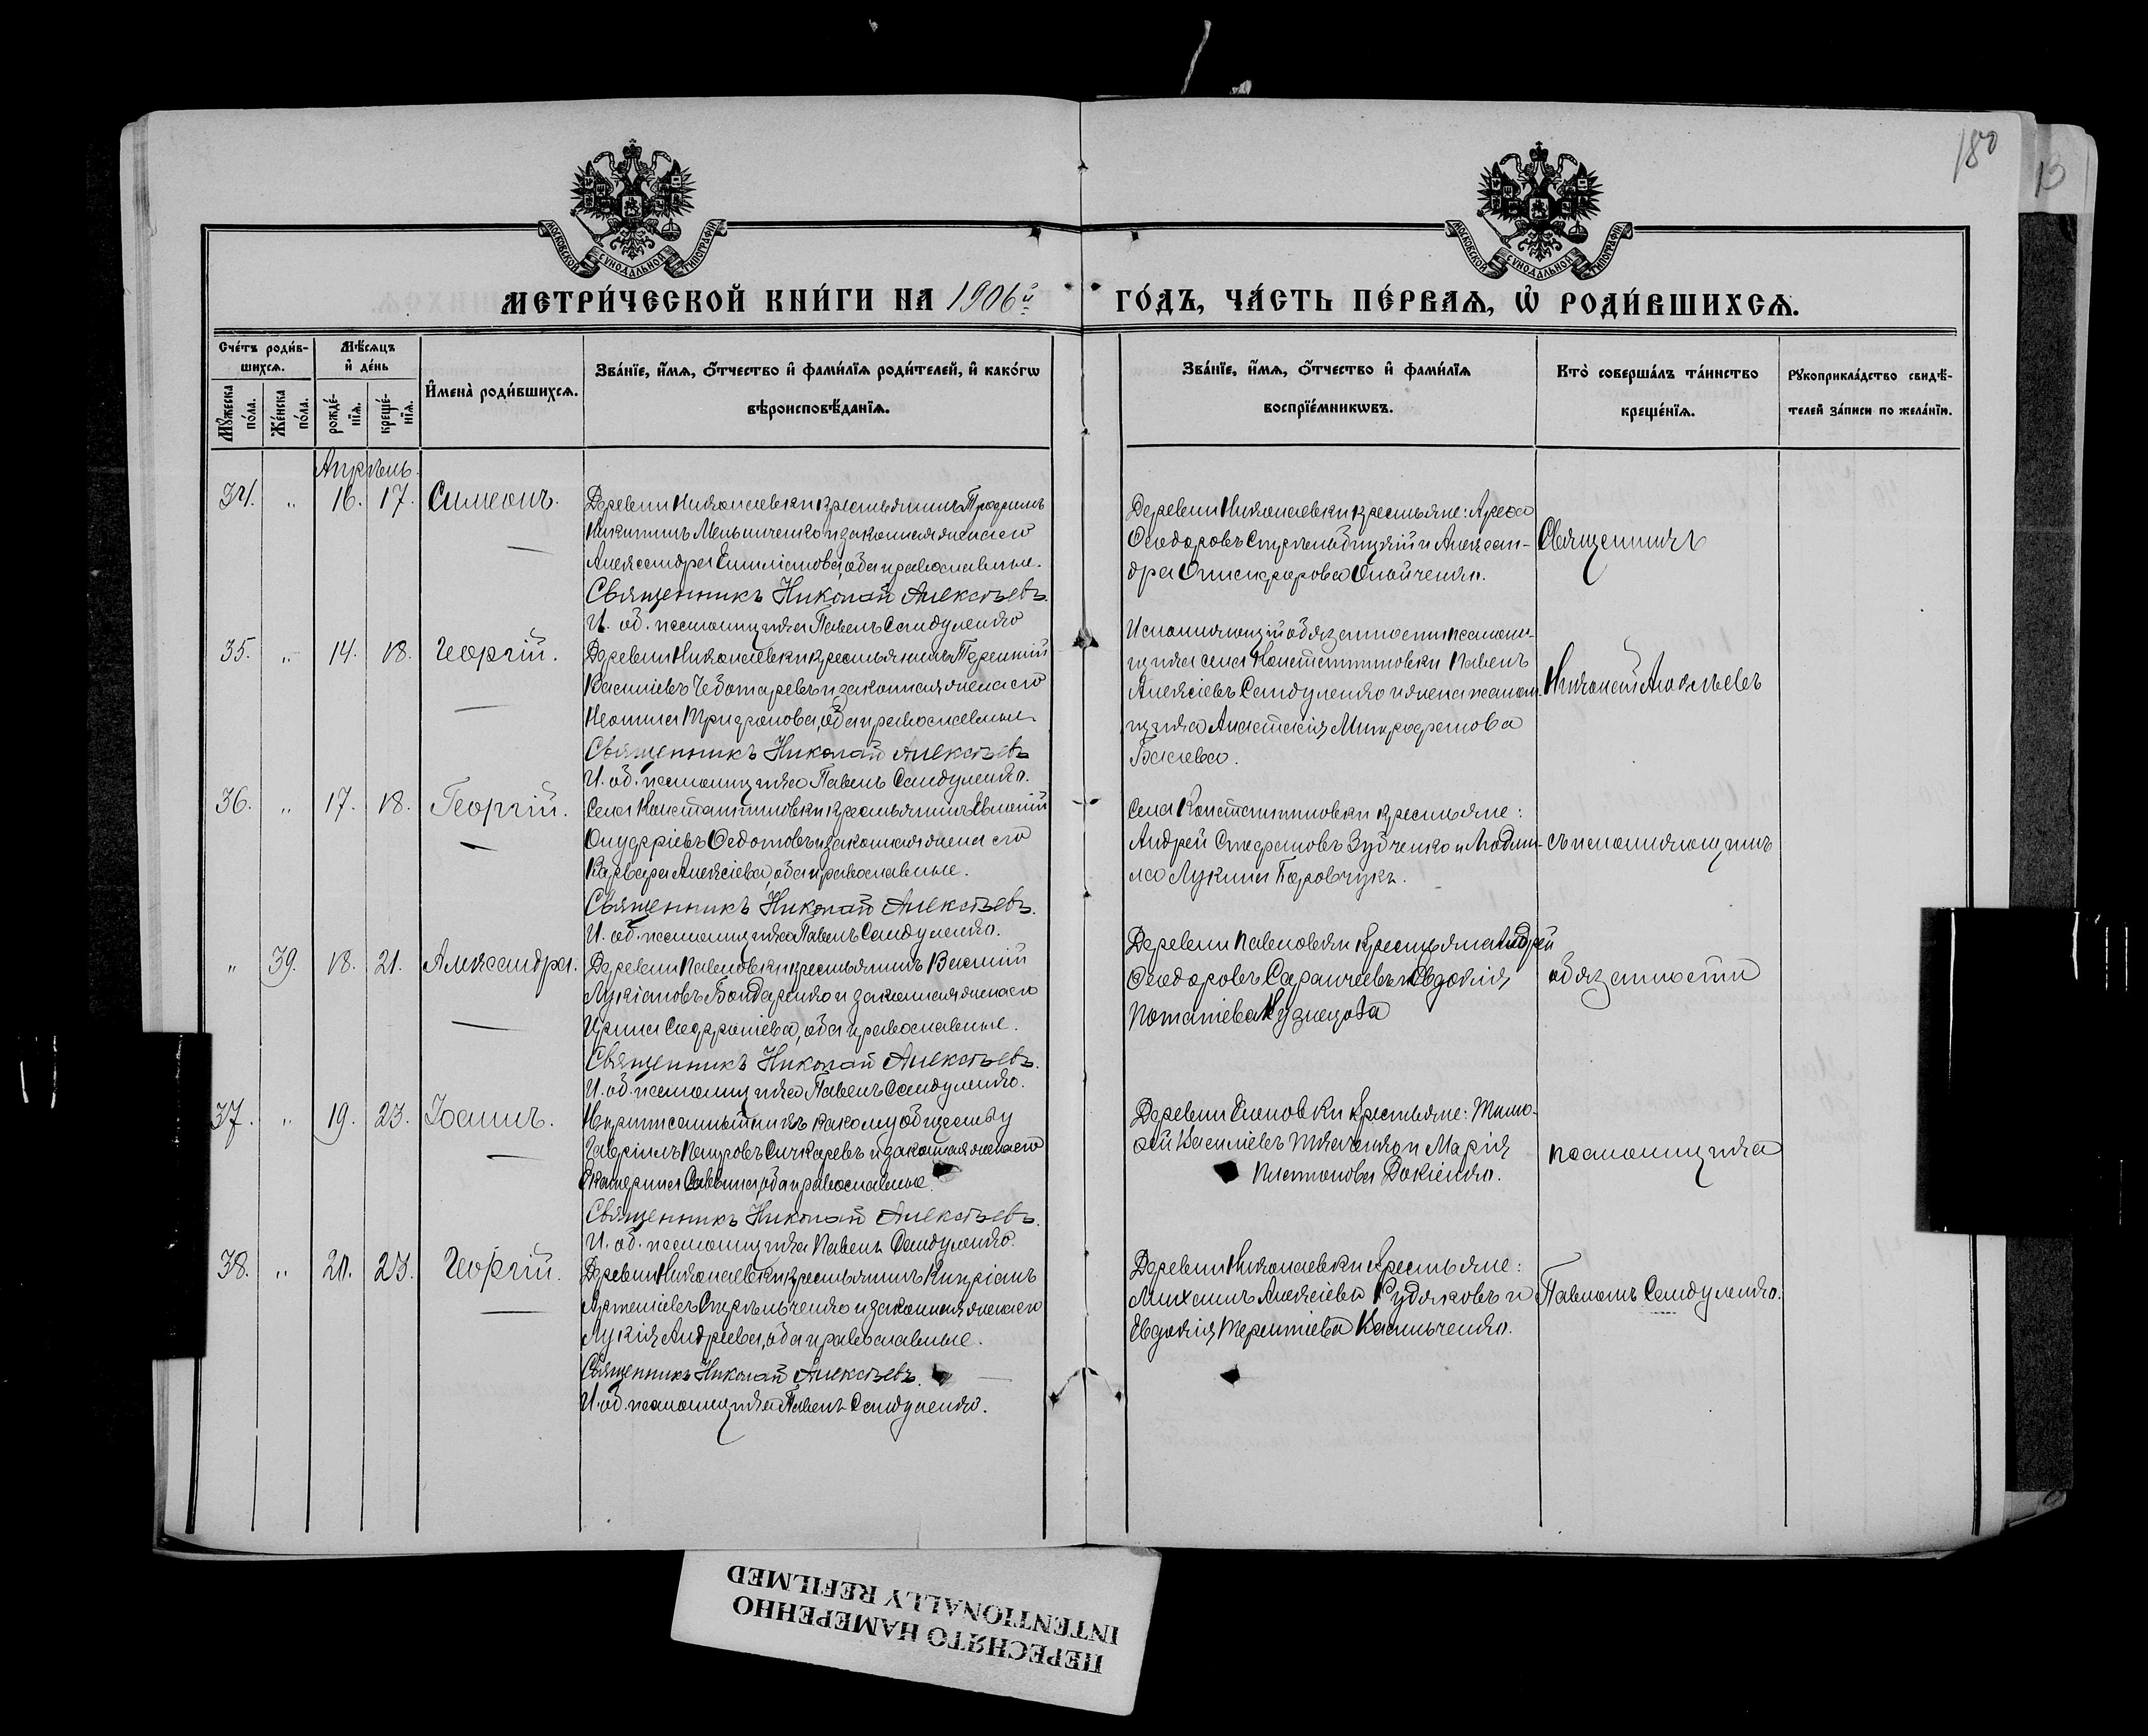 180
13
МОСКОВСКОЙ СѴНОДАЛЬНОЙ ТИПОГРАФІИ
МОСКОВСКОЙ СѴНОДАЛЬНОЙ ТИПОГРАФІИ
МЕТРИ́ЧЕСКОЙ КНИ́ГИ НА 1906й
ГО́ДЪ, ЧА́СТЬ ПЕ́РВАѦ, Ѡ҆ РОДИ́ВШИХСѦ.
Сче́тъ роди́в-
шихсѧ.
Мꙋ́жеска по́ла.
Же́нска по́ла.
Мѣ́сѧцъ и҆ де́нь
рожде́-нїѧ.
креще́-нїѧ.
И҆мена̀ роди́вшихсѧ.
Зва́нїе, и҆́мѧ, ѻ҆́тчество и҆ фами́лїѧ роди́телей, и҆ како́гѡ
вѣроисповѣ́данїѧ.
Зва́нїе, и҆́мѧ, ѻ҆́тчество и҆ фами́лїѧ
воспрїе́мникѡвъ.
Кто̀ соверша́лъ та́инство
креще́нїѧ.
Рꙋкоприкла́дство свидѣ́-
телей за́писи по жела́нїю.
Апрѣль.
34. " 16. 17. Симеонъ.
Деревни Николаевки крестьянинъ Трофимъ
Никитинъ Мельниченко и законная жена его
Александра Емиліанова, оба православные.
Священникъ Николай Алексѣевъ.
И. об. псаломщика Павелъ Сандуленко
Деревни Николаевки крестьяне: Арефа
Ѳеодоровъ Стрельбицкій и Алексан-
дра Онисифорова Олойченко.
Священникъ
35. " 14. 18. Георгій.
Деревни Николаевки крестьянинъ Терентій
Василіевъ Чеботаревъ и законная жена его
Неонила Трифонова, оба православные
Священникъ Николай Алексѣевъ
И. об. псаломщика Павелъ Сандуленко.
Исполняющій обязанности псалом-
щика села Константиновки Павелъ
Алексіевъ Сандуленко и жена псалом-
щика Анастасія Митрофанова
Баева.
Николай Алексѣевъ
36. " 17. 18. Георгій.
Села Константиновки крестьянинъ Евменій
Онуфріевъ Ѳедотовъ и законная жена его
Варвара Алексіева, оба православные.
Священникъ Николай Алексѣевъ.
И. об. псаломщика Павелъ Сандуленко.
Села Константиновки крестьяне:
Андрей Стефановъ Зубченко и Людми-
ла Лукина Боровчукъ.
съ исполняющимъ
" 39. 18. 21. Александра.
Деревни Павловки крестьянинъ Василій
Лукіановъ Бондаренко и законная жена его
Ирина Софроніева, оба православные.
Священникъ Николай Алексѣевъ.
И. об. псаломщика Павелъ Сандуленко.
Деревни Павловки крестьяне Андрей
Ѳеодоровъ Саранчевъ и Евдокія
Потапіева Кузнецова
обязанности
37. " 19. 23. Іоаннъ.
Неприписанный ни къ какому обществу
Гавріилъ Петровъ Сичкаревъ и законная жена его
Екатерина Саввина, оба православные.
Священникъ Николай Алексѣевъ.
И. об. псаломщика Павелъ Сандуленко.
Деревни Еленовки крестьяне: Тимо-
фей Василіевъ Ткаченко и Марія
Платонова Докіенко.
псаломщика
38. " 20. 23. Георгій.
Деревни Николаевки крестьянинъ Кипріанъ
Артеміевъ Стрѣльченко и законная жена его
Лукія Андреева, оба православные.
Священникъ Николай Алексѣевъ.
И. об. псаломщика Павелъ Сандуленко.
Деревни Николаевки крестьяне:
Михаилъ Алексіевъ Кудряковъ и
Евдокія Терентіева Касильченко.
Павломъ Сандуленко.
ПЕРЕСНЯТО НАМЕРЕННО
INTENTIONALLY REFILMED